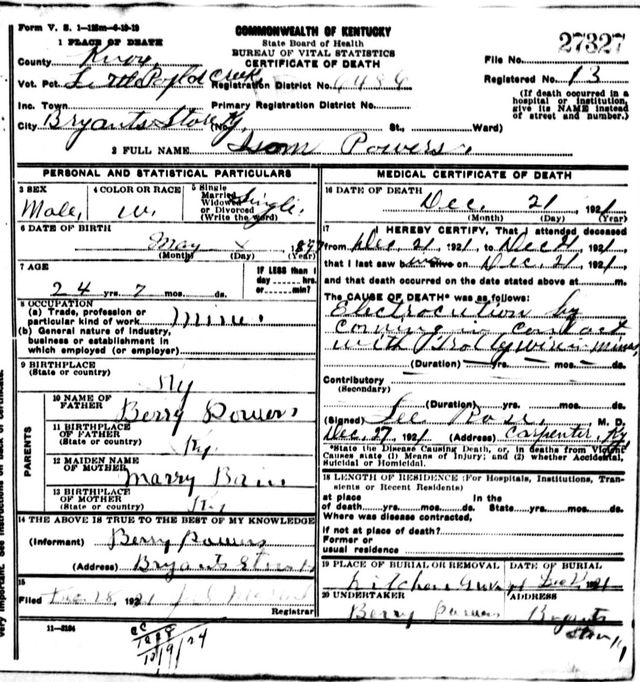 Form V. S. 1—125m—6-19-19
COMMONWEALTH OF KENTUCKY
State Board of Health
BUREAU OF VITAL STATISTICS
CERTIFICATE OF DEATH
27327
1 PLACE OF DEATH
County Knox
File No.
Vot. Pct. Creek Registration District No. 6486 Registered No. 13
(If death occurred in a hospital or institution, give its NAME instead of street and number.)
Inc. Town Primary Registration District No.
City Bryants Store Ky (No. St., Ward)
2 FULL NAME Isom Powers.
PERSONAL AND STATISTICAL PARTICULARS
3 SEX Male,
4 COLOR OR RACE W.
5 Single Married Widowed or Divorced (Write the word) Single.
6 DATE OF BIRTH
May
(Month) (Day) (Year)
7 AGE
24 yrs. 7 mos. ds.
IF LESS than 1 day hrs. or min?
8 OCCUPATION
(a) Trade, profession or particular kind of work
(b) General nature of industry, business or establishment in which employed (or employer)
9 BIRTHPLACE
(State or country) Ky
PARENTS
10 NAME OF FATHER Berry Powers
11 BIRTHPLACE OF FATHER
(State or country) Ky.
12 MAIDEN NAME OF MOTHER Marry
13 BIRTHPLACE OF MOTHER
(State or country) Ky
14 THE ABOVE IS TRUE TO THE BEST OF MY KNOWLEDGE
(Informant) Berry Powers
(Address) Bryants Store
15
Filed Dec. 28, 1921
Registrar
11—3184
MEDICAL CERTIFICATE OF DEATH
16 DATE OF DEATH
Dec. 21, 1921
(Month) (Day) (Year)
17 I HEREBY CERTIFY, That I attended deceased
from Dec. 21, 1921, to Dec 21, 1921,
that I last saw h alive on Dec. 21, 1921,
and that death occurred on the date stated above at m.
The CAUSE OF DEATH* was as follows:
Electrocution by
coming in contact
with Trolly wire in mines
(Duration) yrs. mos. ds.
Contributory
(Secondary)
(Duration) yrs. mos. ds.
(Signed) Lee M. D.
Dec. 27, 1921 (Address) Carpenter, Ky
*State the Disease Causing Death, or, in deaths from Violent Causes state (1) Means of Injury; and (2) whether Accidental, Suicidal or Homicidal.
18 LENGTH OF RESIDENCE (For Hospitals, Institutions, Transients or Recent Residents)
at place of death yrs. mos. ds. In the State yrs. mos. ds.
Where was disease contracted,
if not at place of death?
Former or usual residence
19 PLACE OF BURIAL OR REMOVAL
DATE OF BURIAL
20 UNDERTAKER
ADDRESS
Berry Powers Bryants
Store Ky